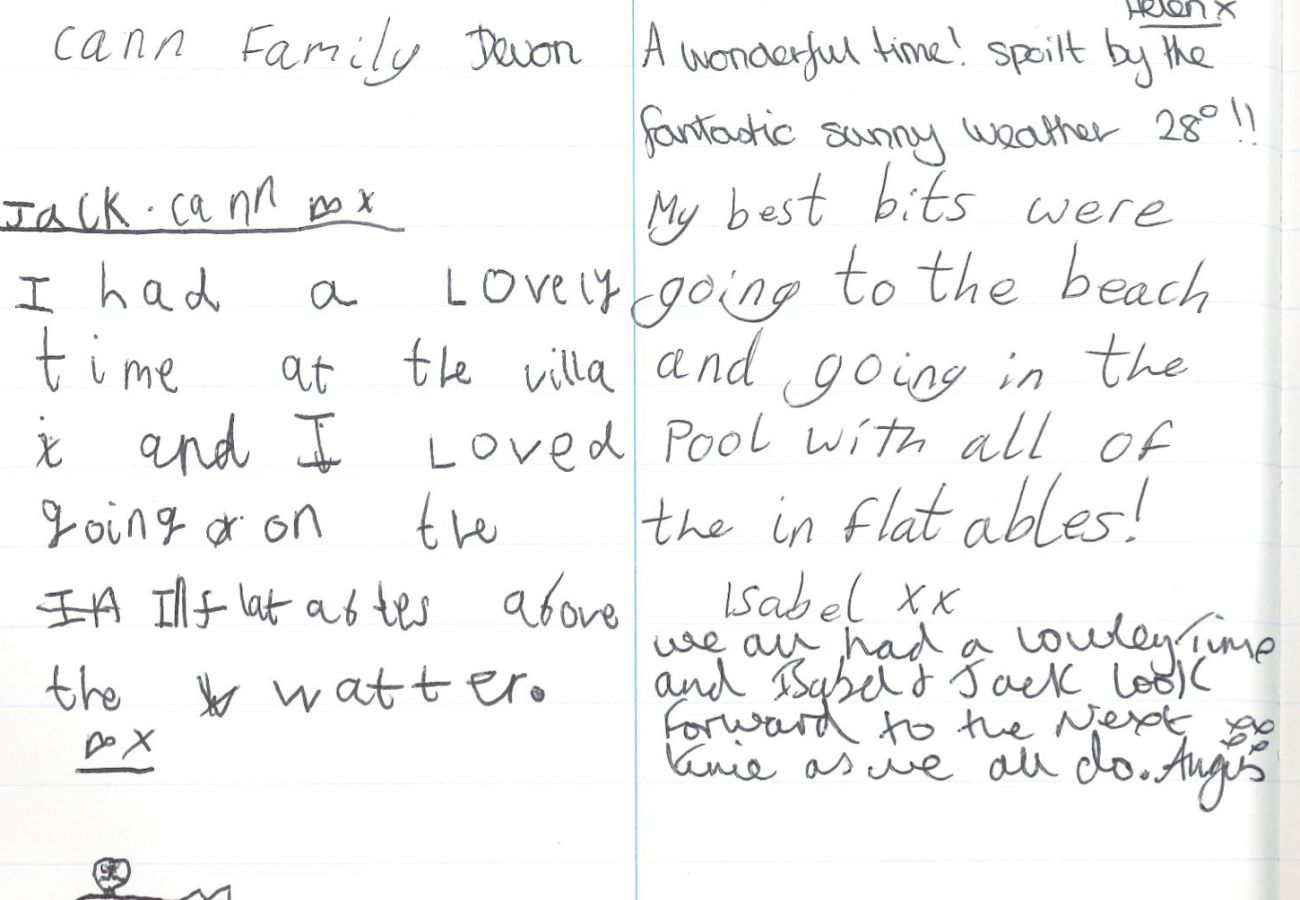 Cann Family Devon
Jack.cann x
I had a Lovely
time at the villa
and I Loved
going on the
Inflatables above
the watter.
x
Helen x
A wonderful time! spoilt by the
fantastic sunny weather 28° !!
My best bits were
going to the beach
and going in the
Pool with all of
the in flat ables!
Isabel xx
we all had a lovley Time
and Isabel & Jack look
forward to the Next
time as we all do. Angus